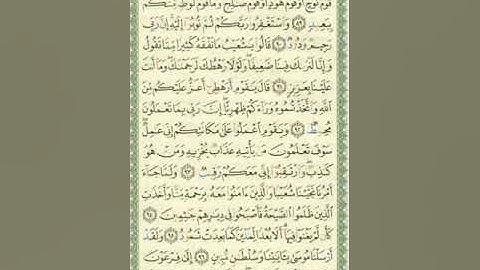 قَوْمَ نُوحٍ أَوْ قَوْمَ هُودٍ أَوْ قَوْمَ صَٰلِحٍ وَمَا قَوْمُ لُوطٍ مِّنكُم
بِبَعِيدٍ ٨٩ وَٱسْتَغْفِرُوا۟ رَبَّكُمْ ثُمَّ تُوبُوٓا۟ إِلَيْهِ إِنَّ رَبِّى
رَحِيمٌ وَدُودٌ ٩٠ قَالُوا۟ يَٰشُعَيْبُ مَا نَفْقَهُ كَثِيرًا مِّمَّا تَقُولُ
وَإِنَّا لَنَرَىٰكَ فِينَا ضَعِيفًا وَلَوْلَا رَهْطُكَ لَرَجَمْنَٰكَ وَمَآ أَنتَ
عَلَيْنَا بِعَزِيزٍ ٩١ قَالَ يَٰقَوْمِ أَرَهْطِىٓ أَعَزُّ عَلَيْكُم مِّنَ
ٱللَّهِ وَٱتَّخَذْتُمُوهُ وَرَآءَكُمْ ظِهْرِيًّا إِنَّ رَبِّى بِمَا تَعْمَلُونَ
مُحِيطٌ ٩٢ وَيَٰقَوْمِ ٱعْمَلُوا۟ عَلَىٰ مَكَانَتِكُمْ إِنِّى عَٰمِلٌ
سَوْفَ تَعْلَمُونَ مَن يَأْتِيهِ عَذَابٌ يُخْزِيهِ وَمَنْ هُوَ
كَٰذِبٌ وَٱرْتَقِبُوٓا۟ إِنِّى مَعَكُمْ رَقِيبٌ ٩٣ وَلَمَّا جَآءَ
أَمْرُنَا نَجَّيْنَا شُعَيْبًا وَٱلَّذِينَ ءَامَنُوا۟ مَعَهُۥ بِرَحْمَةٍ مِّنَّا وَأَخَذَتِ
ٱلَّذِينَ ظَلَمُوا۟ ٱلصَّيْحَةُ فَأَصْبَحُوا۟ فِى دِيَٰرِهِمْ جَٰثِمِينَ ٩٤
كَأَن لَّمْ يَغْنَوْا۟ فِيهَآ أَلَا بُعْدًا لِّمَدْيَنَ كَمَا بَعِدَتْ ثَمُودُ ٩٥ وَلَقَدْ
أَرْسَلْنَا مُوسَىٰ بِـَٔايَٰتِنَا وَسُلْطَٰنٍ مُّبِينٍ ٩٦ إِلَىٰ فِرْعَوْنَ